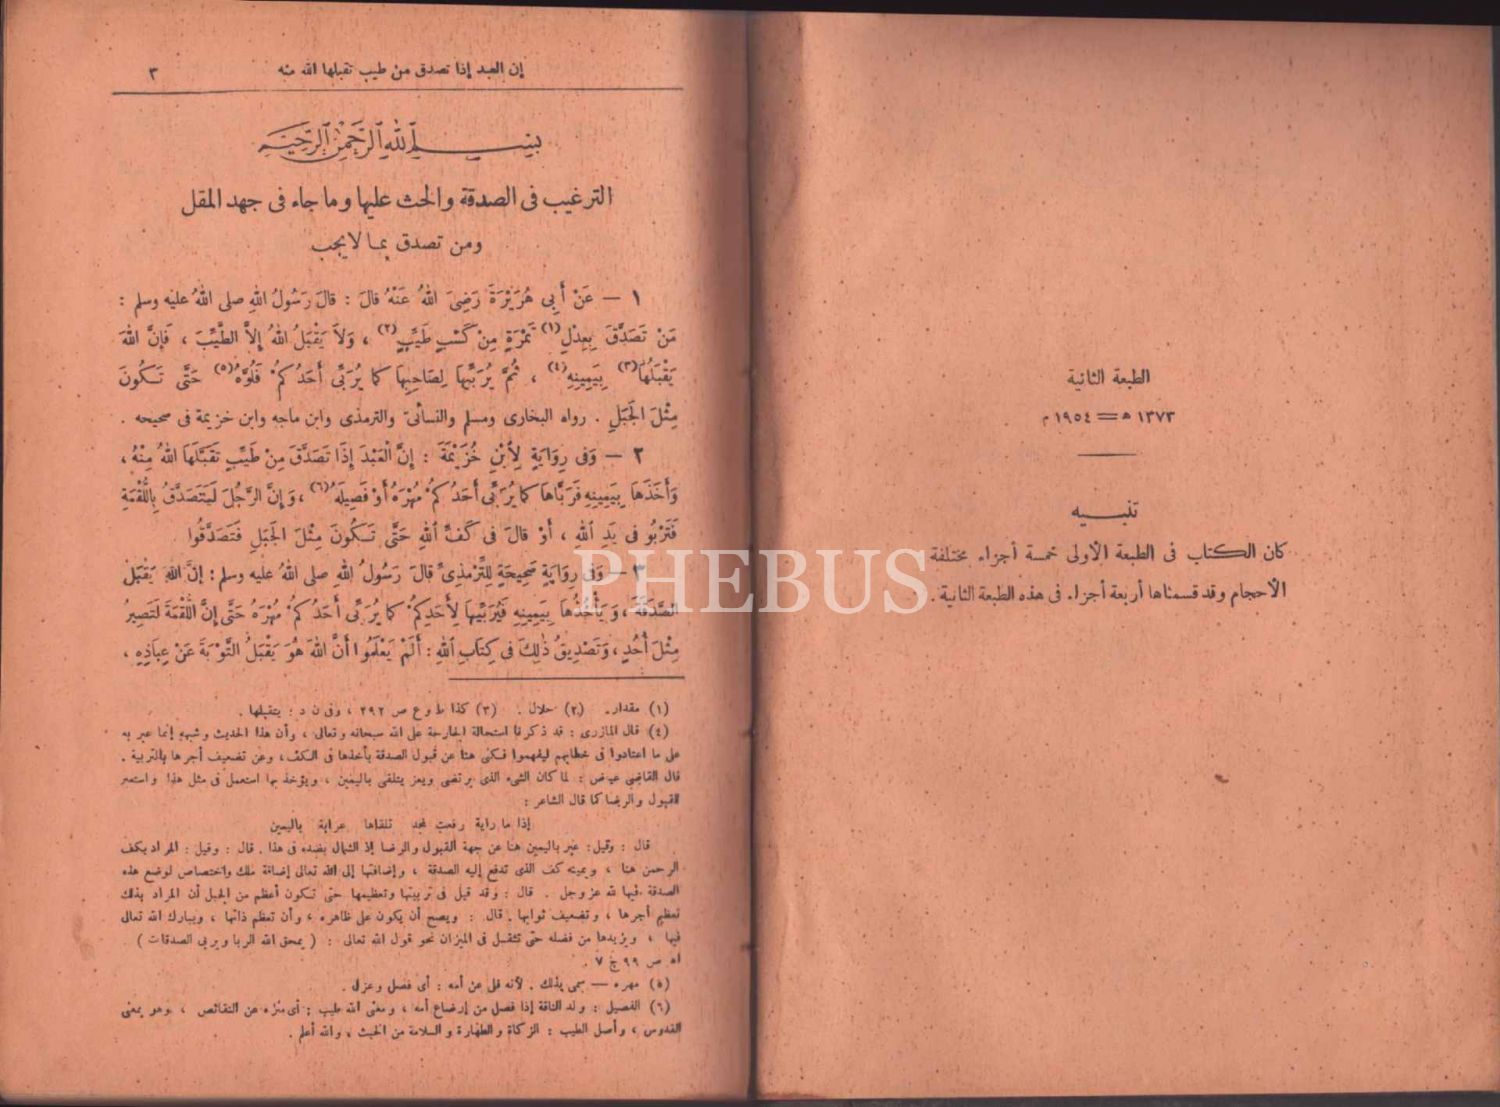 الطبعة الثانية
١٣٧٣ ھ = ١٩٥٤ م
تنبيه
كان الكتاب فى الطبعة الأولى خمسة أجزاء مختلفة
الأحجام وقد قسمناها أربعة أجزاء فى هذه الطبعة الثانية .
PHEBUS
إن العبد إذا تصدق من طيب تقبلها الله منه ٣
بِسْمِ اللهِ الرَّحْمٰنِ الرَّحِيْمِ
الترغيب فى الصدقة والحث عليها وما جاء فى جهد المقل
ومن تصدق بما لا يجب
١ — عَنْ أَبِى هُرَيْرَةَ رَضِىَ اللهُ عَنْهُ قَالَ : قَالَ رَسُولُ اللهِ صلى اللهُ عليه وسلم :
مَنْ تَصَدَّقَ بِعِدْلِ(١) تَمْرَةٍ مِنْ كَسْبٍ طَيِّبٍ(٢) ، وَلاَ يَقْبَلُ اللهُ إِلاَّ الطَّيِّبَ ، فَإِنَّ اللهَ
يَقْبَلُهَا(٣) بِيَمِينِهِ(٤) ، ثُمَّ يُرَبِّيهَا لِصَاحِبِهَا كَمَا يُرَبِّى أَحَدُكُمْ فَلُوَّهُ(٥) حَتَّى تَكُونَ
مِثْلَ الجَبَلِ . رواه البخارى ومسلم والنسائى والترمذى وابن ماجه وابن خزيمة فى صحيحه .
٢ — وَفِى رِوَايَةٍ لِابْنِ خُزَيْمَةَ : إِنَّ الْعَبْدَ إِذَا تَصَدَّقَ مِنْ طَيِّبٍ تَقَبَّلَهَا اللهُ مِنْهُ ،
وَأَخَذَهَا بِيَمِينِهِ فَرَبَّاهَا كَمَا يُرَبِّى أَحَدُكُمْ مُهْرَهُ أَوْ فَصِيلَهُ(٦) ، وَإِنَّ الرَّجُلَ لَيَتَصَدَّقُ بِاللُّقْمَةِ
فَتَرْبُو فِى يَدِ اللهِ ، أَوْ قَالَ فِى كَفِّ اللهِ حَتَّى تَكُونَ مِثْلَ الجَبَلِ فَتَصَدَّقُوا .
٣ — وَفِى رِوَايَةٍ صَحِيحَةٍ لِلتِّرْمِذِىِّ قَالَ رَسُولُ اللهِ صلى اللهُ عليه وسلم : إِنَّ اللهَ يَقْبَلُ
الصَّدَقَةَ ، وَيَأْخُذُهَا بِيَمِينِهِ فَيُرَبِّيهَا لِأَحَدِكُمْ كَمَا يُرَبِّى أَحَدُكُمْ مُهْرَهُ حَتَّى إِنَّ اللُّقْمَةَ لَتَصِيرُ
مِثْلَ أُحُدٍ ، وَتَصْدِيقُ ذٰلِكَ فِى كِتَابِ اللهِ : أَلَمْ يَعْلَمُوا أَنَّ اللهَ هُوَ يَقْبَلُ التَّوْبَةَ عَنْ عِبَادِهِ ،
(١) مقدار. (٢) حلال . (٣) كذا ط وع ص ٢٩٢ ، وفى ن د : يتقبلها .
(٤) قال المازرى : قد ذكرنا استحالة الجارحة على الله سبحانه وتعالى ، وأن هذا الحديث وشبهه إنما عبر به
على ما اعتادوا فى خطابهم ليفهموا فكنى هنا عن قبول الصدقة بأخذها فى الكف ، وعن تضعيف أجرها بالتربية .
قال القاضى عياض : لما كان الشىء الذى يرتضى ويعز يتلقى باليمين ، ويؤخذ بها استعمل فى مثل هذا واستعير
للقبول والرضا كما قال الشاعر :
إذا ما راية رفعت لمجد تلقاها عرابة باليمين
قال : وقيل : عبر باليمين هنا عن جهة القبول والرضا إذ الشمال بضده فى هذا . قال : وقيل : المراد بكف
الرحمن هنا ، ويمينه كف الذى تدفع إليه الصدقة ، وإضافتها إلى الله تعالى إضافة ملك واختصاص لوضع هذه
الصدقة فيها لله عز وجل . قال : وقد قيل فى تربيتها وتعظيمها حتى تكون أعظم من الجبل أن المراد بذلك
تعظيم أجرها ، وتضعيف ثوابها . قال : ويصح أن يكون على ظاهره ، وأن تعظم ذاتها ، ويبارك الله تعالى
فيها ، ويزيدها من فضله حتى تثقل فى الميزان نحو قول الله تعالى : ( يمحق الله الربا ويربى الصدقات ) .
اه ص ٩٩ ج ٧ .
(٥) مهره — سمى بذلك . لأنه فلى عن أمه : أى فصل وعزل .
(٦) الفصيل : ولد الناقة إذا فصل من إرضاع أمه ، ومعنى الله طيب : أى منزه عن النقائص ، وهو بمعنى
القدوس ، وأصل الطيب : الزكاة والطهارة والسلامة من الخبث ، والله أعلم .